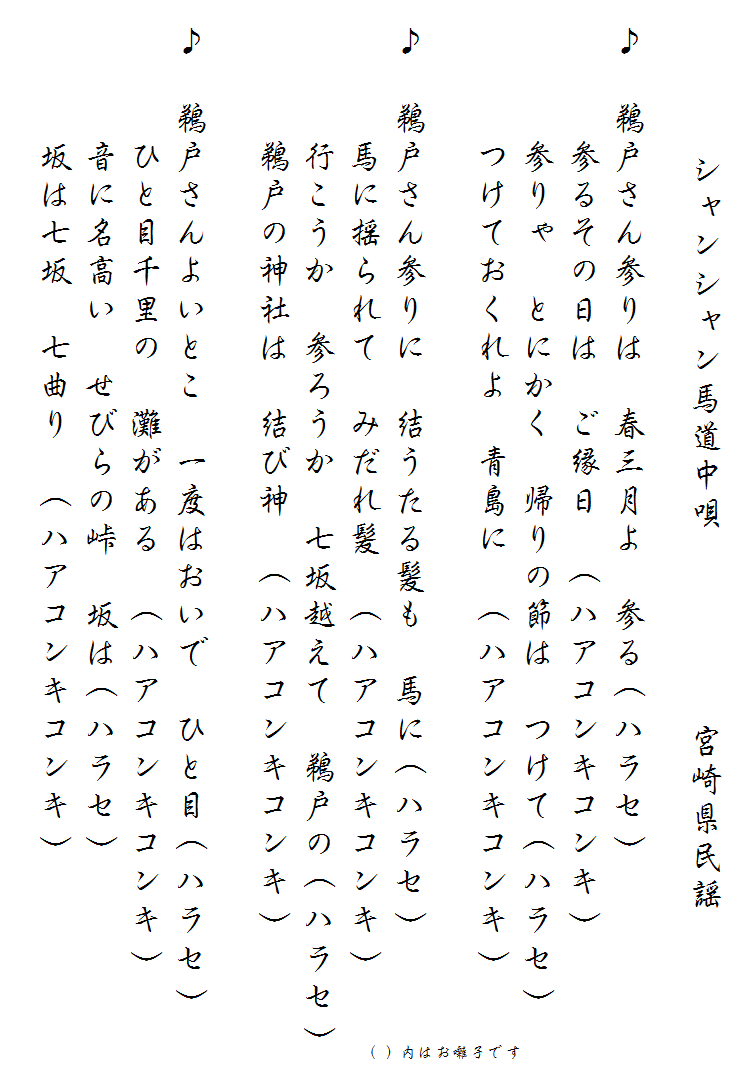 シャンシャン馬道中唄　宮崎県民謡
♪　鵜戸さん参りは　春三月よ　参る（ハラセ）
参るその日は　ご縁日　（ハアコンキコンキ）
参りゃ　とにかく　帰りの節は　つけて（ハラセ）
つけておくれよ　青島に　（ハアコンキコンキ）
♪　鵜戸さん参りに　結うたる髪も　馬に（ハラセ）
馬に揺られて　みだれ髪　（ハアコンキコンキ）
行こうか　参ろうか　七坂越えて　鵜戸の（ハラセ）
鵜戸の神社は　結び神　（ハアコンキコンキ）
♪　鵜戸さんよいとこ　一度はおいで　ひと目（ハラセ）
ひと目千里の　灘がある　（ハアコンキコンキ）
音に名高い　せびらの峠　坂は（ハラセ）
坂は七坂　七曲り　（ハアコンキコンキ）
（ ）内はお囃子です